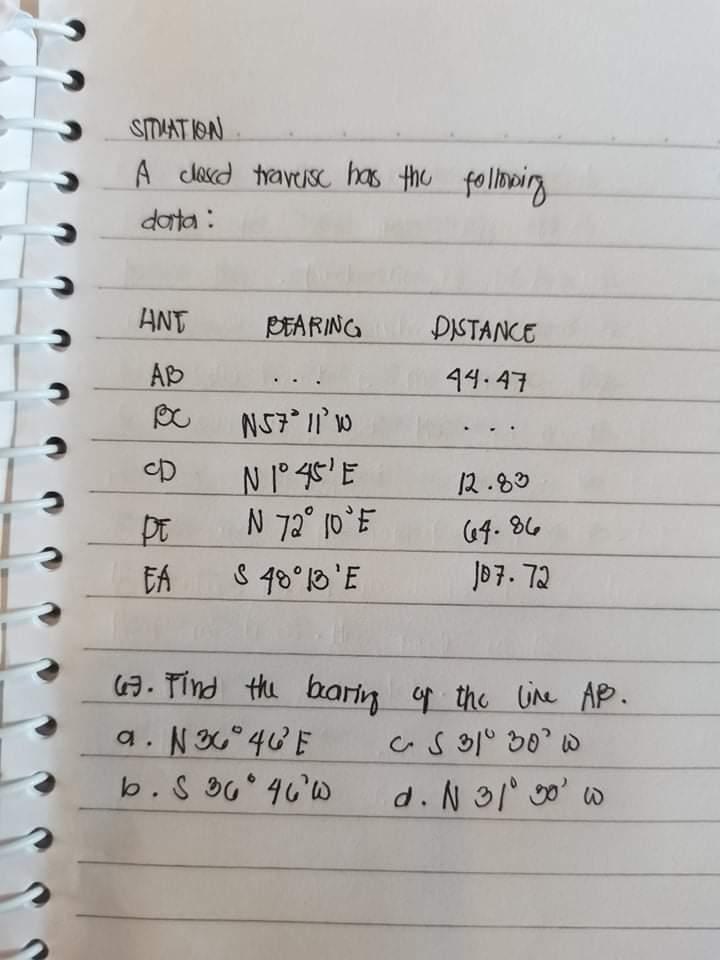 SITUATION
A closed traverse has the following
data:
LINE BEARING DISTANCE
AB ... 44.47
BC N57° 11' W ...
CD N 1° 45' E 12.83
DE N 72° 10' E 64.86
EA S 48° 13' E 107.72
67. Find the bearing of the line AB.
a. N 36° 46' E c. S 31° 30' W
b. S 36° 46' W d. N 31° 30' W